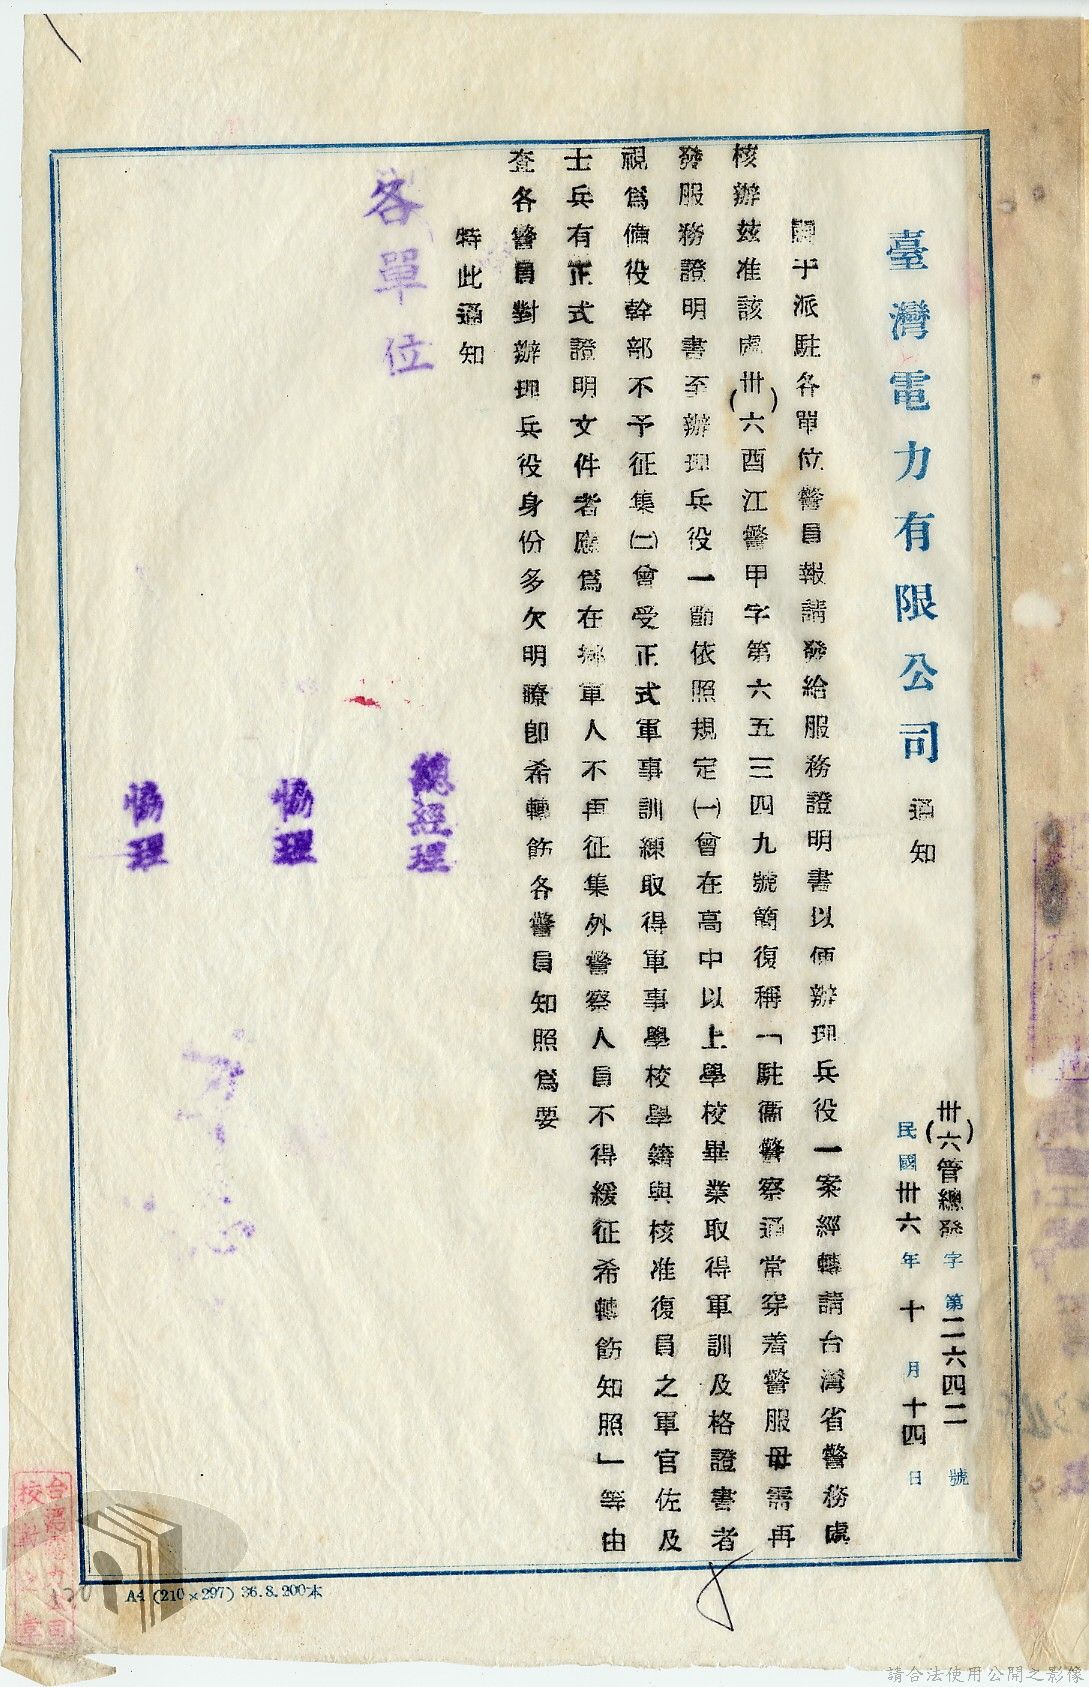 臺灣電力有限公司 通知
(卅六)管總發字第二六四二號
民國卅六年十月十四日
關于派駐各單位警員報請發給服務證明書以便辦理兵役一案經轉請台灣省警務處
核辦茲准該處(卅六)酉江警甲字第六五三四九號簡復稱「駐衞警察通常穿着警服毋需再
發服務證明書至辦理兵役一節依照規定㈠曾在高中以上學校畢業取得軍訓及格證書者
視爲備役幹部不予征集㈡曾受正式軍事訓練取得軍事學校學籍與核准復員之軍官佐及
士兵有正式證明文件者應爲在鄉軍人不再征集外警察人員不得緩征希轉飭知照」等由
查各警員對辦理兵役身份多欠明瞭卽希轉飭各警員知照爲要
特此通知
各單位
總經理
協理
協理
A4 (210×297) 36.8.200本
請合法使用公開之影像